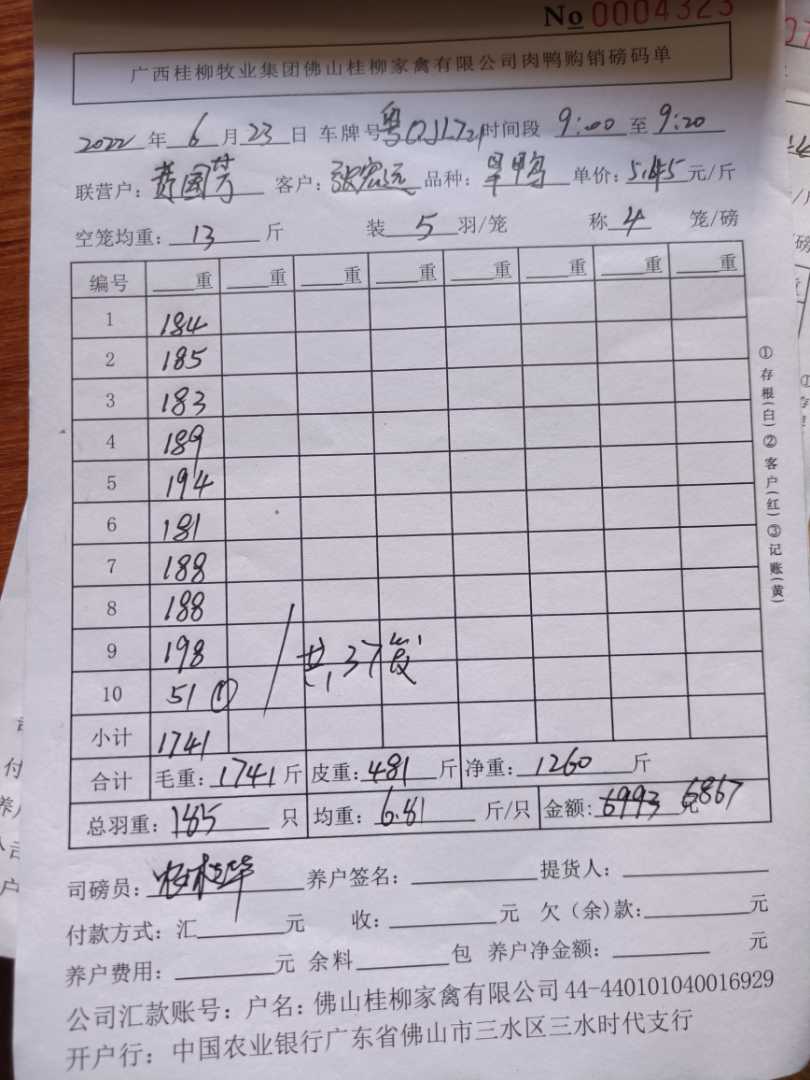 No 0004323
广西桂柳牧业集团佛山桂柳家禽有限公司肉鸭购销磅码单
2022 年 6 月 23 日 车牌号 粤 时间段 9:00 至 9:20
联营户: 黄国芳 客户: 张宏远 品种: 旱鸭 单价: 5.45 元/斤
空笼均重: 13 斤 装 5 羽/笼 称 4 笼/磅
编号 重 重 重 重 重 重 重 重
1 184
2 185
3 183
4 189
5 194
6 181
7 188
8 188
9 198 共37笼
10 51 ①
小计 1741
合计 毛重: 1741 斤 皮重: 481 斤 净重: 1260 斤
总羽重: 185 只 均重: 6.81 斤/只 金额: 6993 元 6867
司磅员: 养户签名: 提货人:
付款方式: 汇 元 收: 元 欠(余)款: 元
养户费用: 元 余料 包 养户净金额: 元
公司汇款账号: 户名: 佛山桂柳家禽有限公司 44-440101040016929
开户行: 中国农业银行广东省佛山市三水区三水时代支行
①存根(白)②客户(红)③记账(黄)